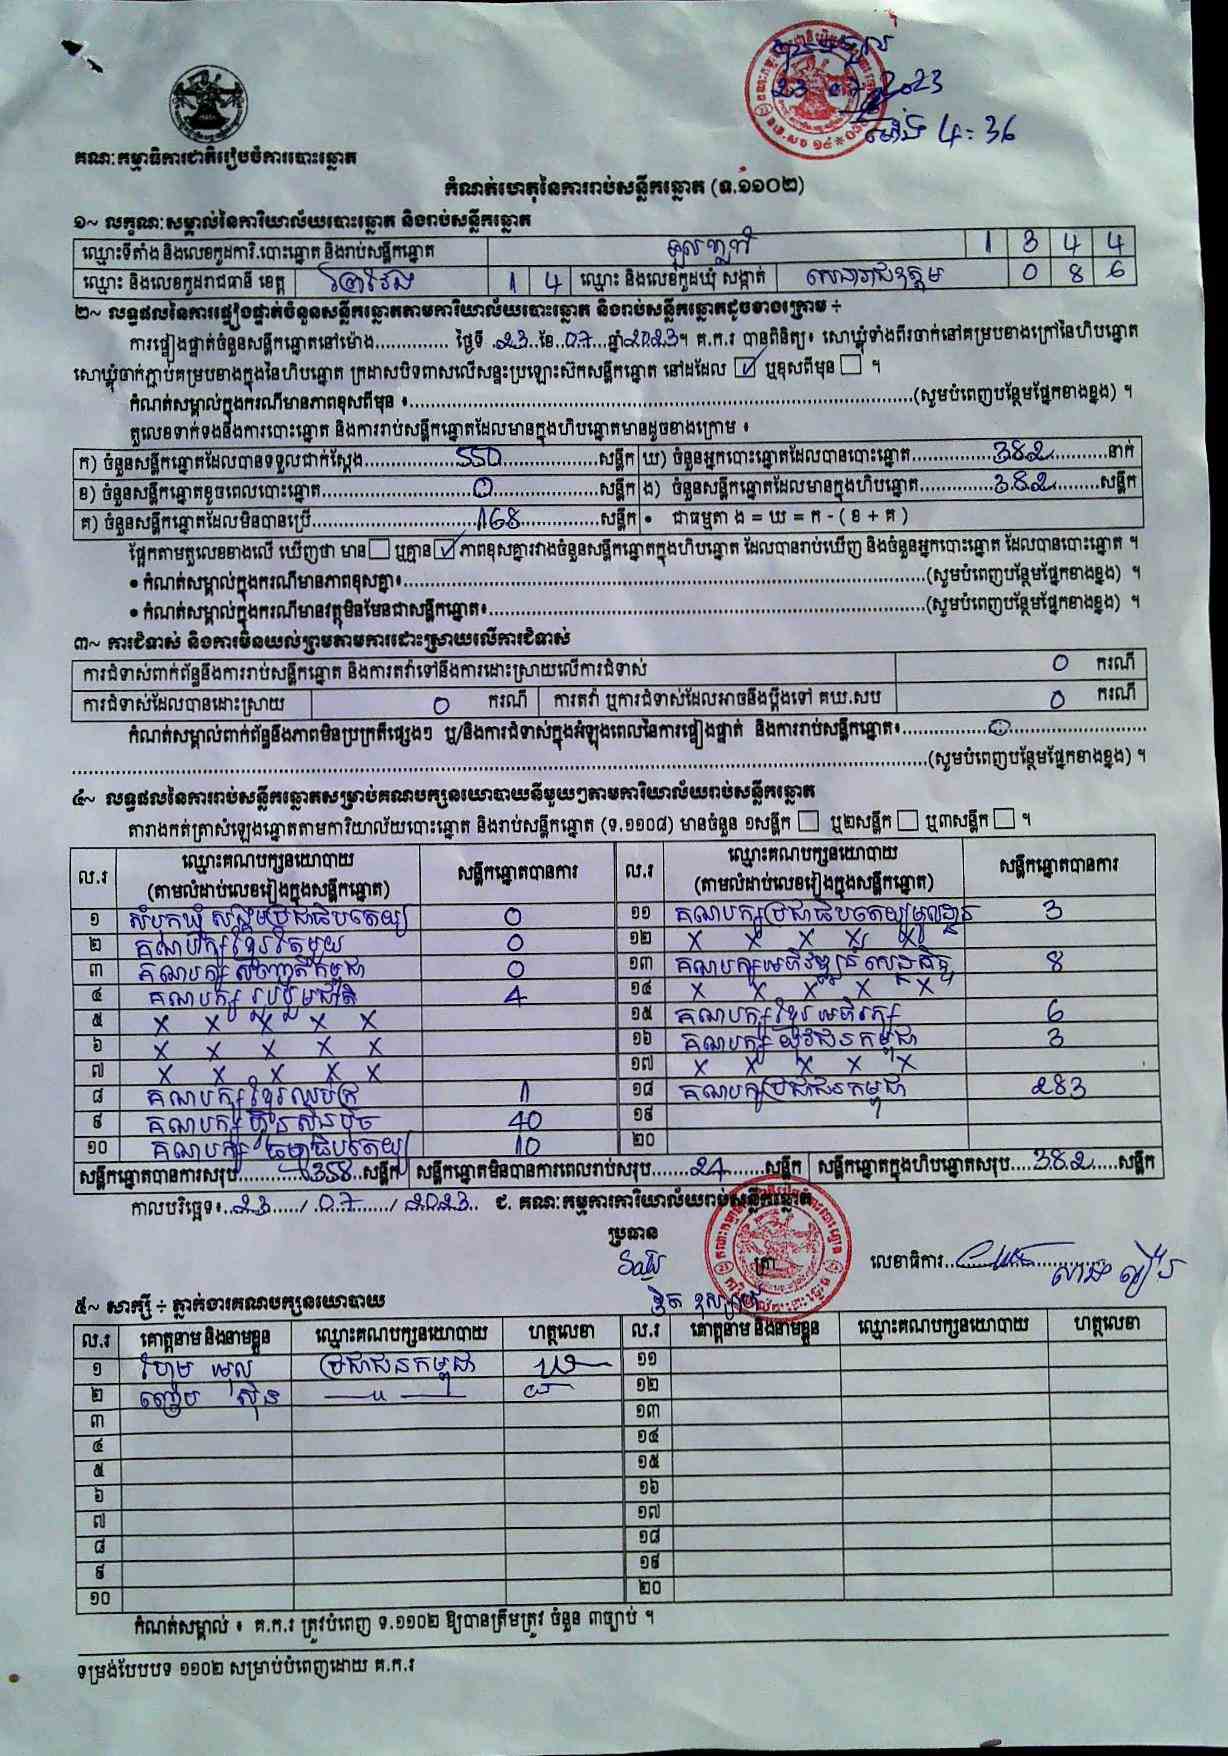 23 07 2023
ម៉ោង 4:36
គណៈកម្មាធិការជាតិរៀបចំការបោះឆ្នោត
កំណត់ហេតុនៃការរាប់សន្លឹកឆ្នោត (ទ.១១០២)
១~ លក្ខណៈសម្គាល់នៃការិយាល័យបោះឆ្នោត និងរាប់សន្លឹកឆ្នោត
ឈ្មោះទីតាំង និងលេខកូដការិ.បោះឆ្នោត និងរាប់សន្លឹកឆ្នោត 1 3 4 4
ឈ្មោះ និងលេខកូដរាជធានី ខេត្ត ព្រៃវែង 1 4 ឈ្មោះ និងលេខកូដឃុំ សង្កាត់ សេនារាជឧត្តម 0 8 6
២~ លទ្ធផលនៃការផ្ទៀងផ្ទាត់ចំនួនសន្លឹកឆ្នោតតាមការិយាល័យបោះឆ្នោត និងរាប់សន្លឹកឆ្នោតដូចខាងក្រោម ÷
ការផ្ទៀងផ្ទាត់ចំនួនសន្លឹកឆ្នោតនៅម៉ោង............. ថ្ងៃទី 23 ខែ 07 ឆ្នាំ 2023។ គ.ក.រ បានពិនិត្យ៖ សោឃ្លុំទាំងពីរចាក់នៅគម្របខាងក្រៅនៃហិបឆ្នោត
សោឃ្លុំចាក់ភ្ជាប់គម្របខាងក្នុងនៃហិបឆ្នោត ក្រដាសបិទពាសលើសន្ទះប្រឡោះស៊កសន្លឹកឆ្នោត នៅដដែល ☑ ឬខុសពីមុន ☐ ។
កំណត់សម្គាល់ក្នុងករណីមានភាពខុសពីមុន ៖..........(សូមបំពេញបន្ថែមផ្នែកខាងខ្នង) ។
តួលេខទាក់ទងនឹងការបោះឆ្នោត និងការរាប់សន្លឹកឆ្នោតដែលមានក្នុងហិបឆ្នោតមានដូចខាងក្រោម ៖
ក) ចំនួនសន្លឹកឆ្នោតដែលបានទទួលជាក់ស្តែង 550 សន្លឹក ឃ) ចំនួនអ្នកបោះឆ្នោតដែលបានបោះឆ្នោត 382 នាក់
ខ) ចំនួនសន្លឹកឆ្នោតខូចពេលបោះឆ្នោត 0 សន្លឹក ង) ចំនួនសន្លឹកឆ្នោតដែលមានក្នុងហិបឆ្នោត 382 សន្លឹក
គ) ចំនួនសន្លឹកឆ្នោតដែលមិនបានប្រើ 168 សន្លឹក • ជាធម្មតា ង = ឃ = ក - ( ខ + គ )
ផ្អែកតាមតួលេខខាងលើ ឃើញថា មាន ☐ ឬគ្មាន ☑ ភាពខុសគ្នារវាងចំនួនសន្លឹកឆ្នោតក្នុងហិបឆ្នោត ដែលបានរាប់ឃើញ និងចំនួនអ្នកបោះឆ្នោត ដែលបានបោះឆ្នោត ។
• កំណត់សម្គាល់ក្នុងករណីមានភាពខុសគ្នា៖..........(សូមបំពេញបន្ថែមផ្នែកខាងខ្នង) ។
• កំណត់សម្គាល់ក្នុងករណីមានវត្ថុមិនមែនជាសន្លឹកឆ្នោត៖..........(សូមបំពេញបន្ថែមផ្នែកខាងខ្នង) ។
៣~ ការជំទាស់ និងការមិនយល់ព្រមតាមការដោះស្រាយលើការជំទាស់
ការជំទាស់ពាក់ព័ន្ធនឹងការរាប់សន្លឹកឆ្នោត និងការតវ៉ាទៅនឹងការដោះស្រាយលើការជំទាស់ 0 ករណី
ការជំទាស់ដែលបានដោះស្រាយ 0 ករណី ការតវ៉ា ឬការជំទាស់ដែលអាចនឹងប្តឹងទៅ គឃ.សប 0 ករណី
កំណត់សម្គាល់ពាក់ព័ន្ធនឹងភាពមិនប្រក្រតីផ្សេងៗ ឬ/និងការជំទាស់ក្នុងអំឡុងពេលនៃការផ្ទៀងផ្ទាត់ និងការរាប់សន្លឹកឆ្នោត៖ 0
(សូមបំពេញបន្ថែមផ្នែកខាងខ្នង) ។
៤~ លទ្ធផលនៃការរាប់សន្លឹកឆ្នោតសម្រាប់គណបក្សនយោបាយនីមួយៗតាមការិយាល័យរាប់សន្លឹកឆ្នោត
តារាងកត់ត្រាសំឡេងឆ្នោតតាមការិយាល័យបោះឆ្នោត និងរាប់សន្លឹកឆ្នោត (ទ.១១០៨) មានចំនួន ១សន្លឹក ☐ ឬ២សន្លឹក ☐ ឬ៣សន្លឹក ☐ ។
ល.រ ឈ្មោះគណបក្សនយោបាយ (តាមលំដាប់លេខរៀងក្នុងសន្លឹកឆ្នោត) សន្លឹកឆ្នោតបានការ ល.រ ឈ្មោះគណបក្សនយោបាយ (តាមលំដាប់លេខរៀងក្នុងសន្លឹកឆ្នោត) សន្លឹកឆ្នោតបានការ
១ សំបុកឃ្មុំសង្គមប្រជាធិបតេយ្យ 0 ១១ គណបក្សប្រជាធិបតេយ្យមូលដ្ឋាន 3
២ គណបក្សខ្មែរតែមួយ 0 ១២ X X X X X
៣ គណបក្សសញ្ជាតិកម្ពុជា 0 ១៣ គណបក្សអភិវឌ្ឍន៍សេដ្ឋកិច្ច 8
៤ គណបក្សរួបរួមជាតិ 4 ១៤ X X X X X
៥ X X X X X ១៥ គណបក្សខ្មែរអភិរក្ស 6
៦ X X X X X ១៦ គណបក្សយុវជនកម្ពុជា 3
៧ X X X X X ១៧ X X X X X
៨ គណបក្សខ្មែរឈប់ក្រ 1 ១៨ គណបក្សប្រជាជនកម្ពុជា 283
៩ គណបក្សហ្វ៊ុនស៊ិនប៉ិច 40 ១៩
១០ គណបក្សធម្មាធិបតេយ្យ 10 ២០
សន្លឹកឆ្នោតបានការសរុប 358 សន្លឹក សន្លឹកឆ្នោតមិនបានការពេលរាប់សរុប 24 សន្លឹក សន្លឹកឆ្នោតក្នុងហិបឆ្នោតសរុប 382 សន្លឹក
កាលបរិច្ឆេទ៖ 23 / 07 / 2023 ជ. គណៈកម្មការការិយាល័យរាប់សន្លឹកឆ្នោត
ប្រធាន
ត្រា
លេខាធិការ
៥~ សាក្សី ÷ ភ្នាក់ងារគណបក្សនយោបាយ
ល.រ គោត្តនាម និងនាមខ្លួន ឈ្មោះគណបក្សនយោបាយ ហត្ថលេខា ល.រ គោត្តនាម និងនាមខ្លួន ឈ្មោះគណបក្សនយោបាយ ហត្ថលេខា
១ ប្រជាជនកម្ពុជា ១១
២ —"— ១២
៣ ១៣
៤ ១៤
៥ ១៥
៦ ១៦
៧ ១៧
៨ ១៨
៩ ១៩
១០ ២០
កំណត់សម្គាល់ ៖ គ.ក.រ ត្រូវបំពេញ ទ.១១០២ ឱ្យបានត្រឹមត្រូវ ចំនួន ៣ច្បាប់ ។
ទម្រង់បែបបទ ១១០២ សម្រាប់បំពេញដោយ គ.ក.រ